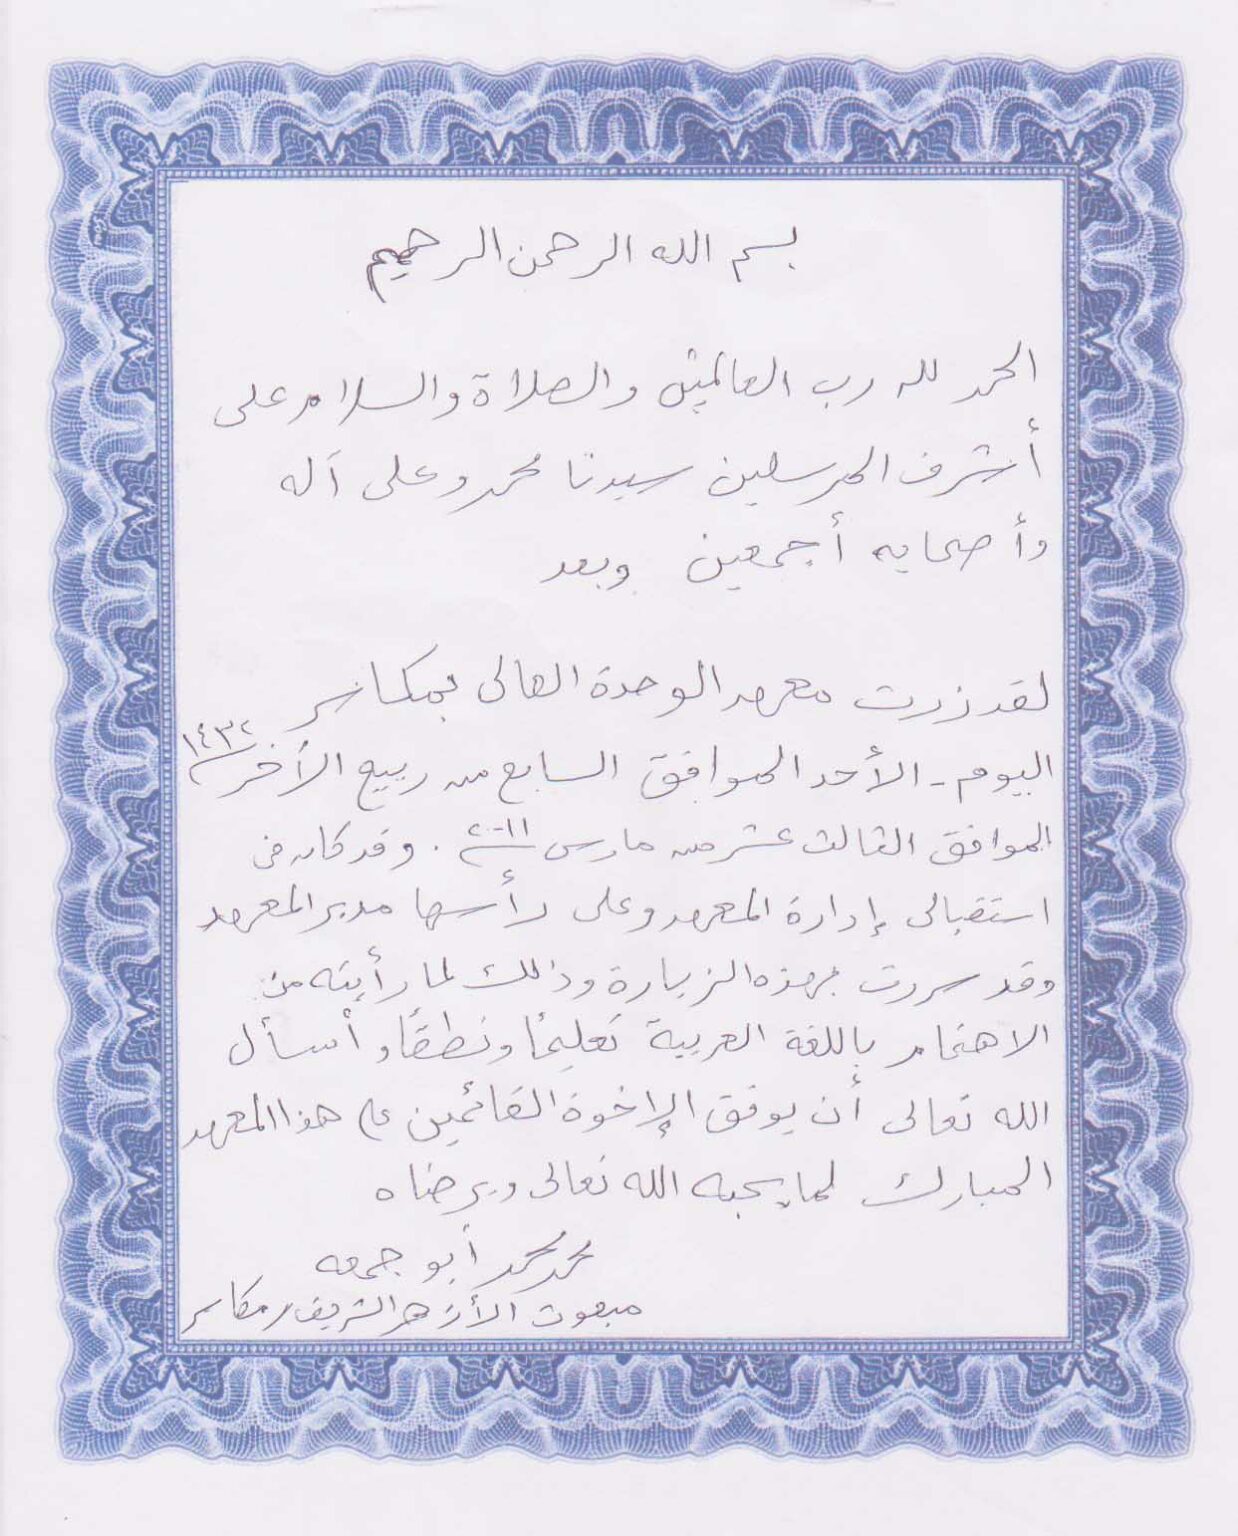 بسم الله الرحمن الرحيم
الحمد لله رب العالمين والصلاة والسلام على
أشرف المرسلين سيدنا محمد وعلى آله
وأصحابه أجمعين وبعد
لقد زرت معهد الوحدة العالى بمكاسر
اليوم - الأحد الموافق السابع من ربيع الأخر ١٤٣٢
الموافق الثالث عشر من مارس ٢٠١١ . وقد كان فى
استقبالى إدارة المعهد وعلى رأسها مدير المعهد
وقد سررت بهذه الزيارة وذلك لما رأيته من
الاهتمام باللغة العربية تعليمًا ونطقًا وأسأل
الله تعالى أن يوفق الإخوة القائمين على هذا المعهد
المبارك لما يحبه الله تعالى ويرضاه
محمد محمد أبو جمعه
مبعوث الأزهر الشريف مكاسر